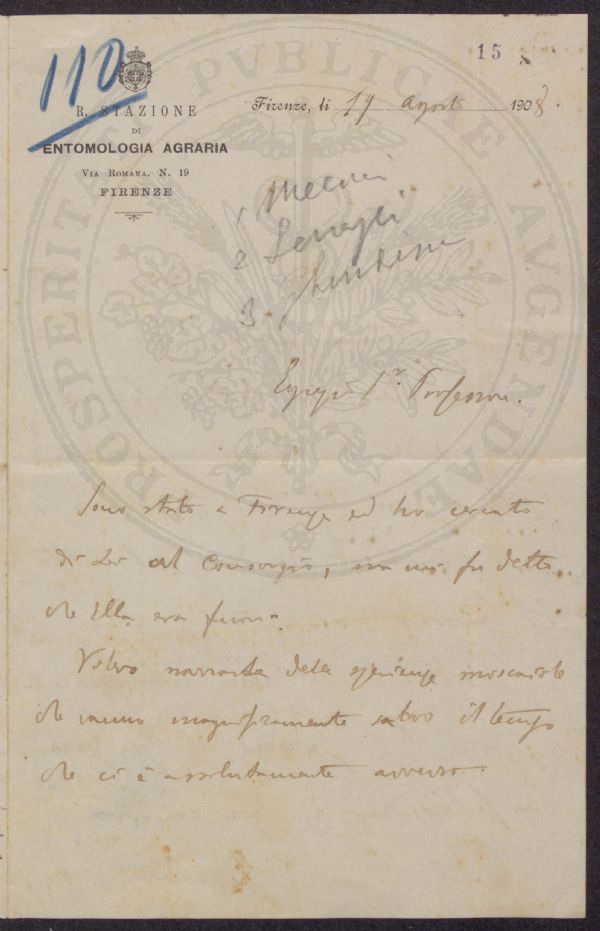 110
15
R. STAZIONE
DI
ENTOMOLOGIA AGRARIA
VIA ROMANA, N. 19
FIRENZE
Firenze, li 19 Agosto 1908.
1
2
3.
Egregio Sr. Professore.
Sono stato a Firenze ed ho cercato
di Lei al Consorzio, ma mi fu detto
che Ella era fuori.
Volevo narrarle delle esperienze moscaiole
che vanno magnificamente salvo il tempo
che ci è assolutamente avverso.
PROSPERITATI PVBLICAE AVGENDAE